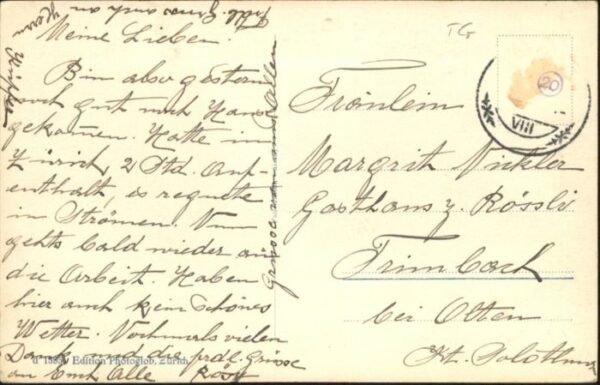 Meine Lieben!
Bin also gestern
noch gut nach Hause
gekommen. Hatte in
Zürich, 2 Std. Auf-
enthalt, es regnete
in Strömen. Nun
gehts bald wieder an
die Arbeit. Haben
hier auch kein schönes
Wetter. Nochmals vielen
Dank und die frdl. Grüsse
an Euch Alle Rösy
Edition Photoglob, Zürich
Grüsse von Allen
Frdl. Gruss auch an Herrn
TG
20
VIII
Fräulein
Margrit Nickler
Gasthaus z. Rössli
Trimbach
bei Olten
Kt. Solothurn